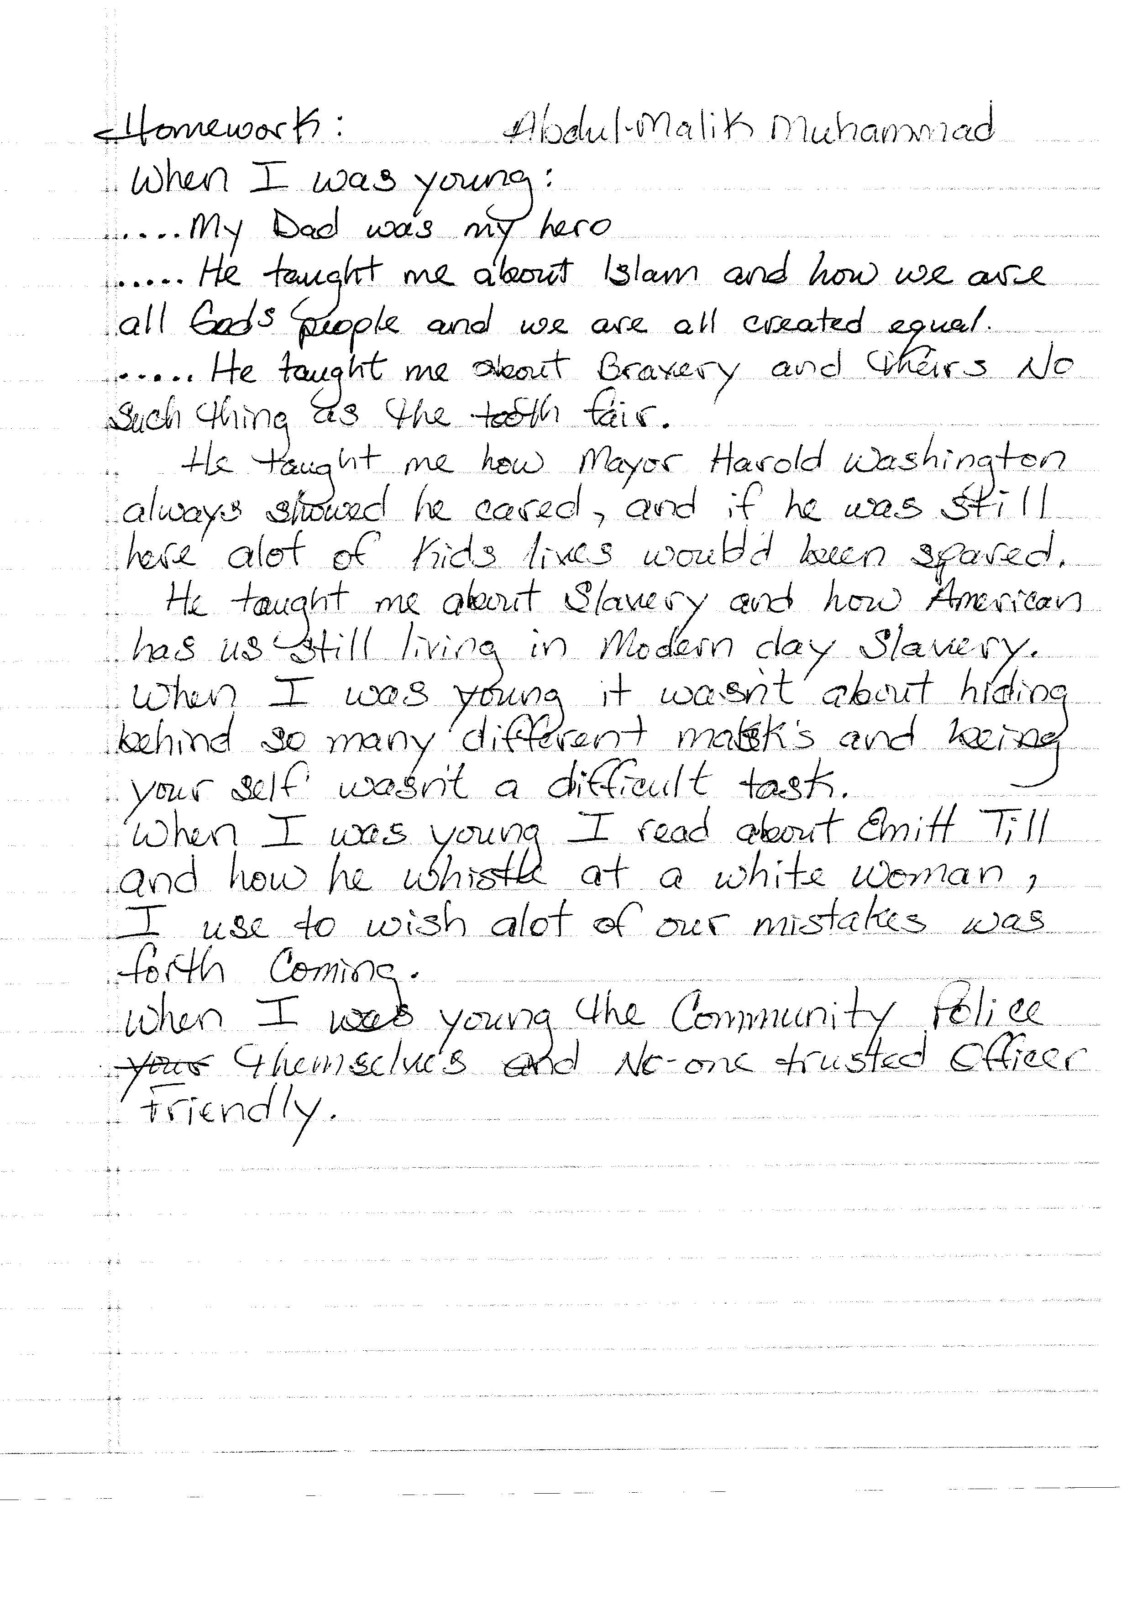 Homework: Abdul-Malik Muhammad
When I was young:
.....My Dad was my hero
.....He taught me about Islam and how we are
all Gods people and we are all created equal.
......He taught me about Bravery and theirs No
such thing as the tooth fair.
He taught me how Mayor Harold Washington
always showed he cared, and if he was still
here alot of kids lives would'd been spared.
He taught me about Slavery and how American
has us still living in Modern day Slavery.
When I was young it wasn't about hiding
behind so many different mask's and being
your self wasn't a difficult task.
When I was young I read about Emitt Till
and how he whistle at a white woman,
I use to wish alot of our mistakes was
forth Coming.
When I was young the Community Police
your themselve's and No-one trusted Officer
Friendly.